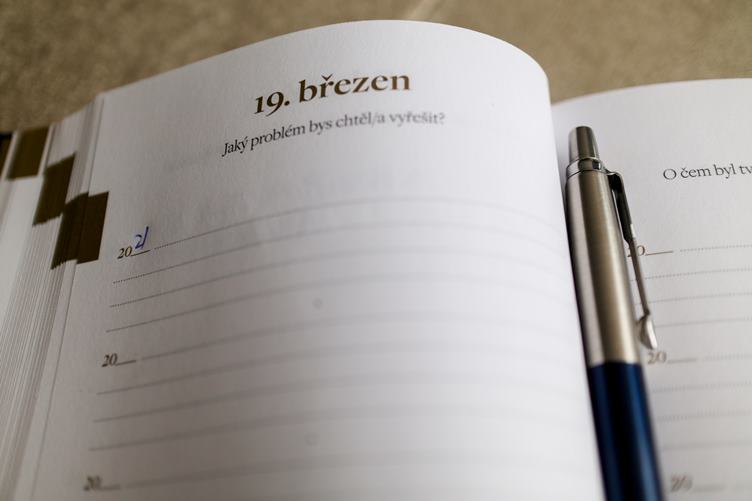 19. březen
Jaký problém bys chtěl/a vyřešit?
2021
20
20
O čem byl
20
20
20